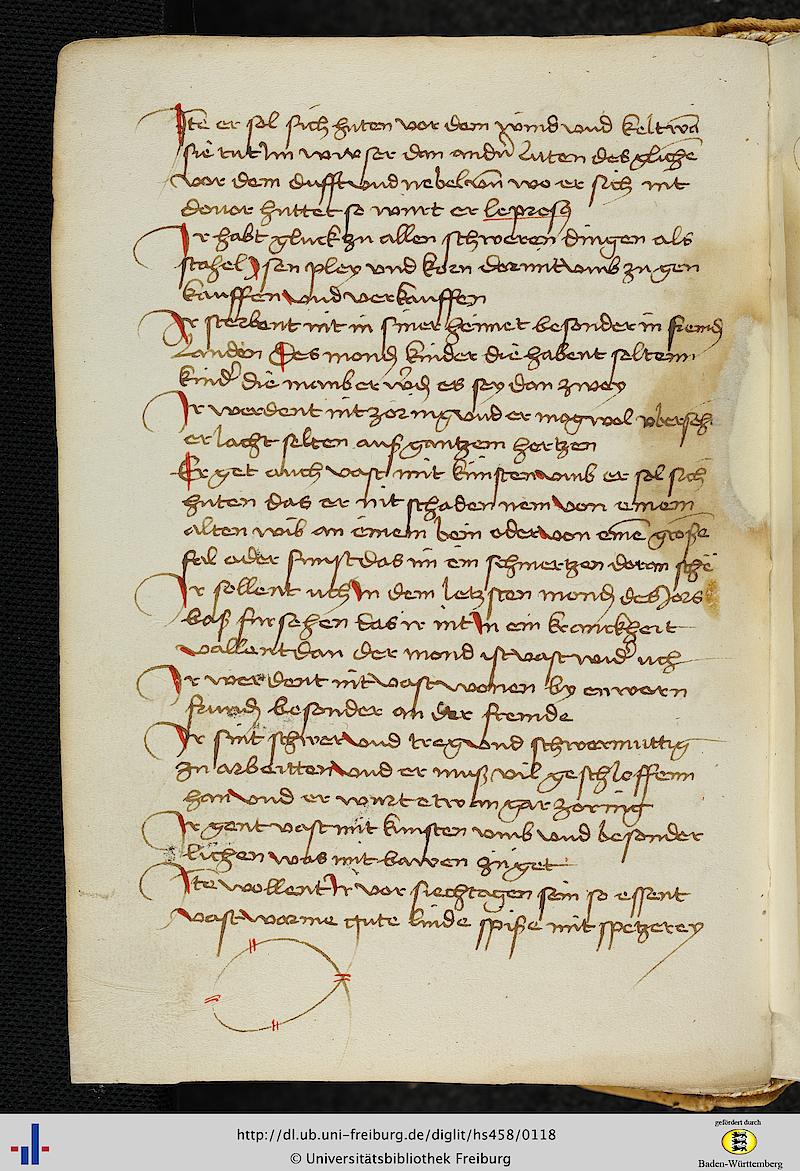 Ite er sol sich hüten vor dem wind vnd kelt wā
sie tut Im wirser dan andn̄ luten des glichē
vor dem dufft vnd nebel vn̄ wo er sich nit
dovor hüttet so wirt er leprosꝰ
Ir habt gluck zu allen schweren dingen als
stahel ysen pley vnd korn dormit vmb zu gen
kauffen vnd verkauffen
Ir sterbent nit in siner heimet besonder in fremdē
Landen Des mondꝭ kinder die habent seltenn
kindꝰ die manber w̄dꝭ es sey dan zwey
Ir werdent nit zornig vnd er mog wol vberseh
er lacht selten auß gantzem hertzen
Er get auch vast mit künsten vmb er sol sich
hüten das er nit schaden nem von einem
alten wib an einem bein oder von eine große
fal oder sunst das im ein schmertzen doran sche
Ir sollent uch In dem letzsten mondꝭ des Jors
baß fürsehen das ir nit In ein kranckheit
vallent dan der mond ist vast widꝰ uch
Ir werdent nit vast wonen by enwern
frundꝭ besonder an der fremde
Ir sint schwer vnd treg vnd schwermuttig
zu arbeitten vnd er muß vil geschloffenn
han vnd er wurt etwan gar zornig
Ir gont vast mit künsten vmb vnd besonder
lichen was mit bawen zu get
Ite wollent Ir vor siechtagen sein so essent
vast worme gute linde spiße mit spetzerey
http://dl.ub.uni-freiburg.de/diglit/hs458/0118
© Universitätsbibliothek Freiburg
gefördert durch
Baden-Württemberg